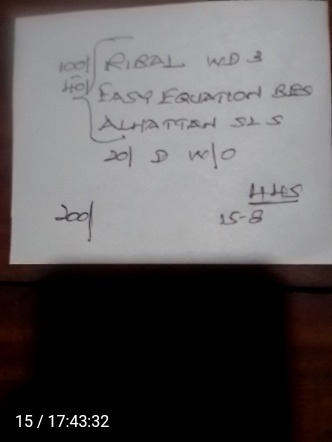 100/ RIBAL WD 3
40/ EASY EQUATION BES
ALHATTAN SLS
20/ D W/O
HHS
200/ 15-8
15 / 17:43:32